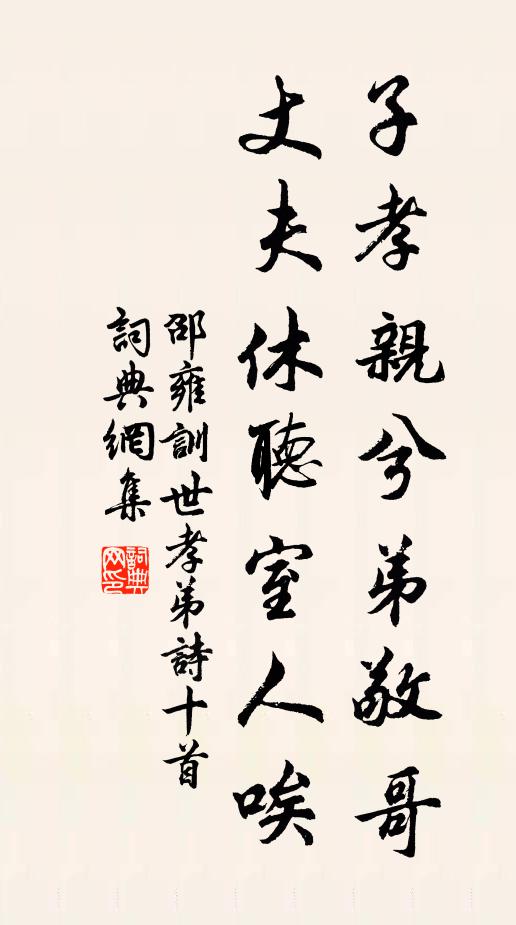 子孝親兮弟敬哥
丈夫休聽室人唉
邵雍訓世孝弟詩十首
詞典網集
詞典网印